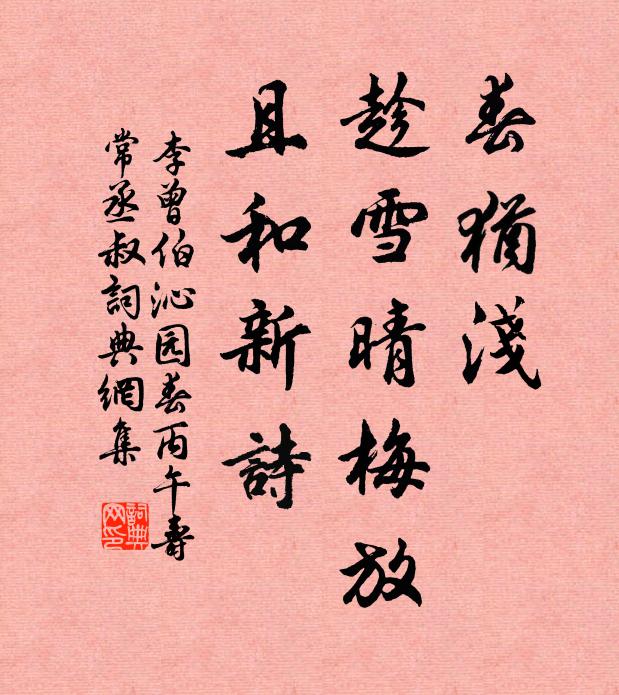 春猶淺
趁雪晴梅放
且和新詩
李曾伯沁园春丙午壽
常丞叔詞典網集
詞典
网印